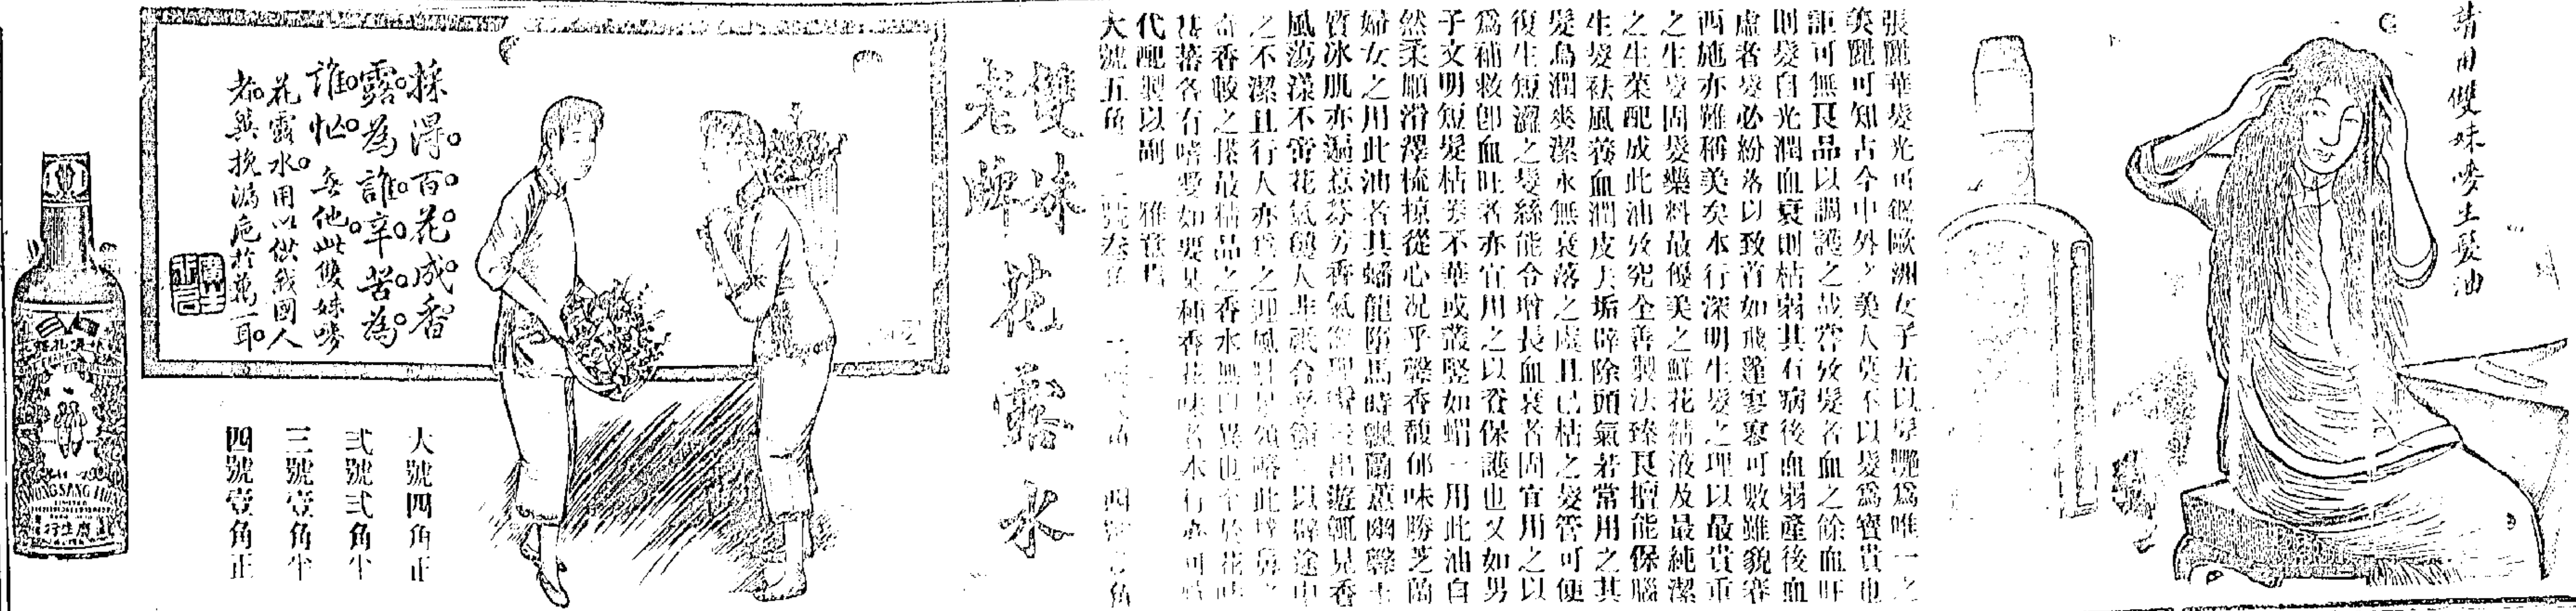 請用雙妹嘜生髮油
張麗華髮光可鑑歐洲女子尤以髮艷為唯一之
美麗可知古今中外之美人莫不以髮為寶貴也
詎可無良品以調護之哉嘗攷髮者血之餘血旺
則髮自光潤血衰則枯弱其有病後血弱產後血
虛者髮必紛落以致首如飛蓬寥寥可數雖貌賽
西施亦難稱美矣本行深明生髮之理以最貴重
之生髮固髮藥料最優美之鮮花精液及最純潔
之生菜配成此油攷究全善製法臻良擅能保腦
生髮祛風養血潤皮去垢辟除頭氣若常用之其
髮烏潤爽潔永無衰落之虞且已枯之髮管可使
復生短澀之髮絲能令增長血衰者固宜用之以
為補救卽血旺者亦宜用之以資保護也又如男
子文明短髮枯萎不華或叢竪如蝟一用此油自
然柔順滑澤梳掠從心况乎馨香馥郁味勝芝蘭
婦女之用此油者其蟠龍墮馬時飄蘭蕙幽馨玉
質冰肌亦遍惹芬芳香氣 出遊輒見香
風蕩漾不啻花氣襲人非祇合 以辟途中
之不潔且行人亦 之迎風 此
奇香較之搽最精品之香水無以異也至於花
甚蕃各有嗜愛如要某種香花味者本行亦可
代配製以副 雅意
大號五角 二號叁角 四號 角
雙妹
老牌
花露水
採得百花成香
露為誰辛苦為
誰忙 無他此雙妹嘜
花露水用以供我國人
者冀挽漏卮於萬一耳
大號四角正
弍號弍角半
三號壹角半
四號壹角正
KWONG SANG HONG
LIMITED
行生廣